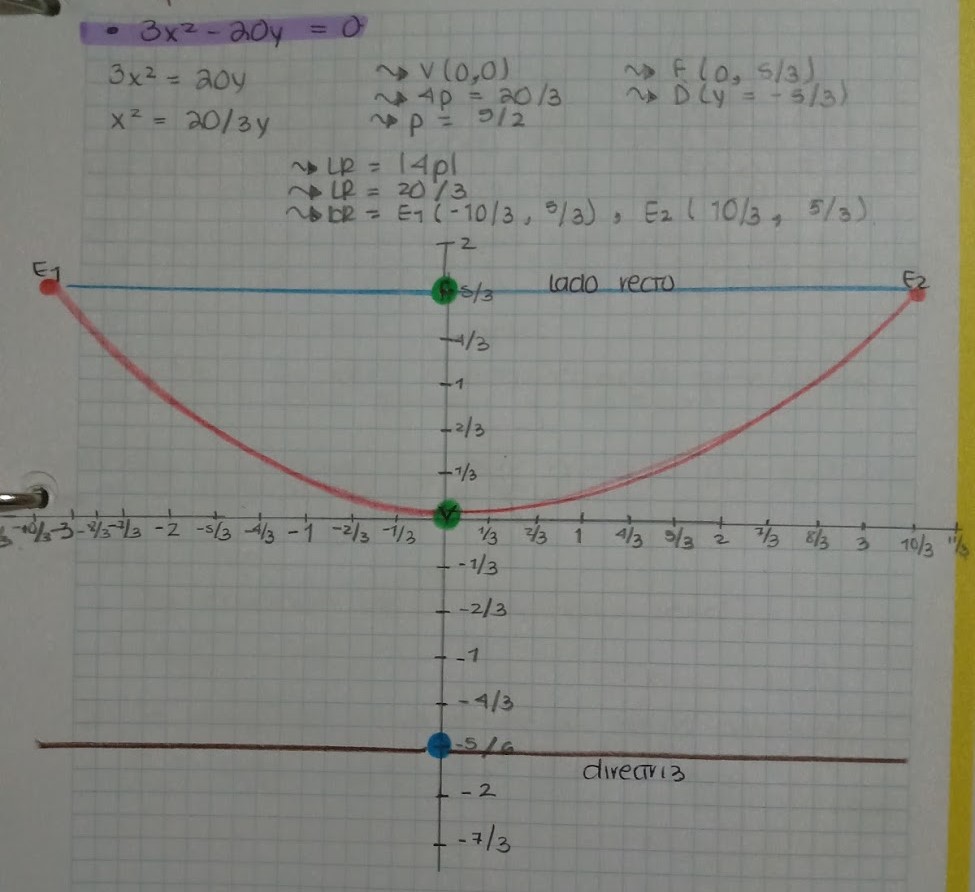 • 3x² - 20y = 0
3x² = 20y
x² = 20/3y
~> V(0,0)
~> 4p = 20/3
~> p = 5/2
~> F(0, 5/3)
~> D(y = -5/3)
~> LR = |4p|
~> LR = 20/3
~> LR = E1(-10/3, 5/3), E2(10/3, 5/3)
2
E1
F
5/3
lado recto
E2
4/3
1
2/3
1/3
V
-10/3 -3 -8/3 -7/3 -2 -5/3 -4/3 -1 -2/3 -1/3 1/3 2/3 1 4/3 5/3 2 7/3 8/3 3 10/3 11/3
-1/3
-2/3
-1
-4/3
-5/6
directriz
-2
-7/3